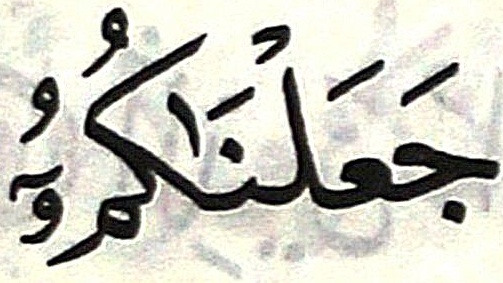 جَعَلْنَٰكُمُۥٓ